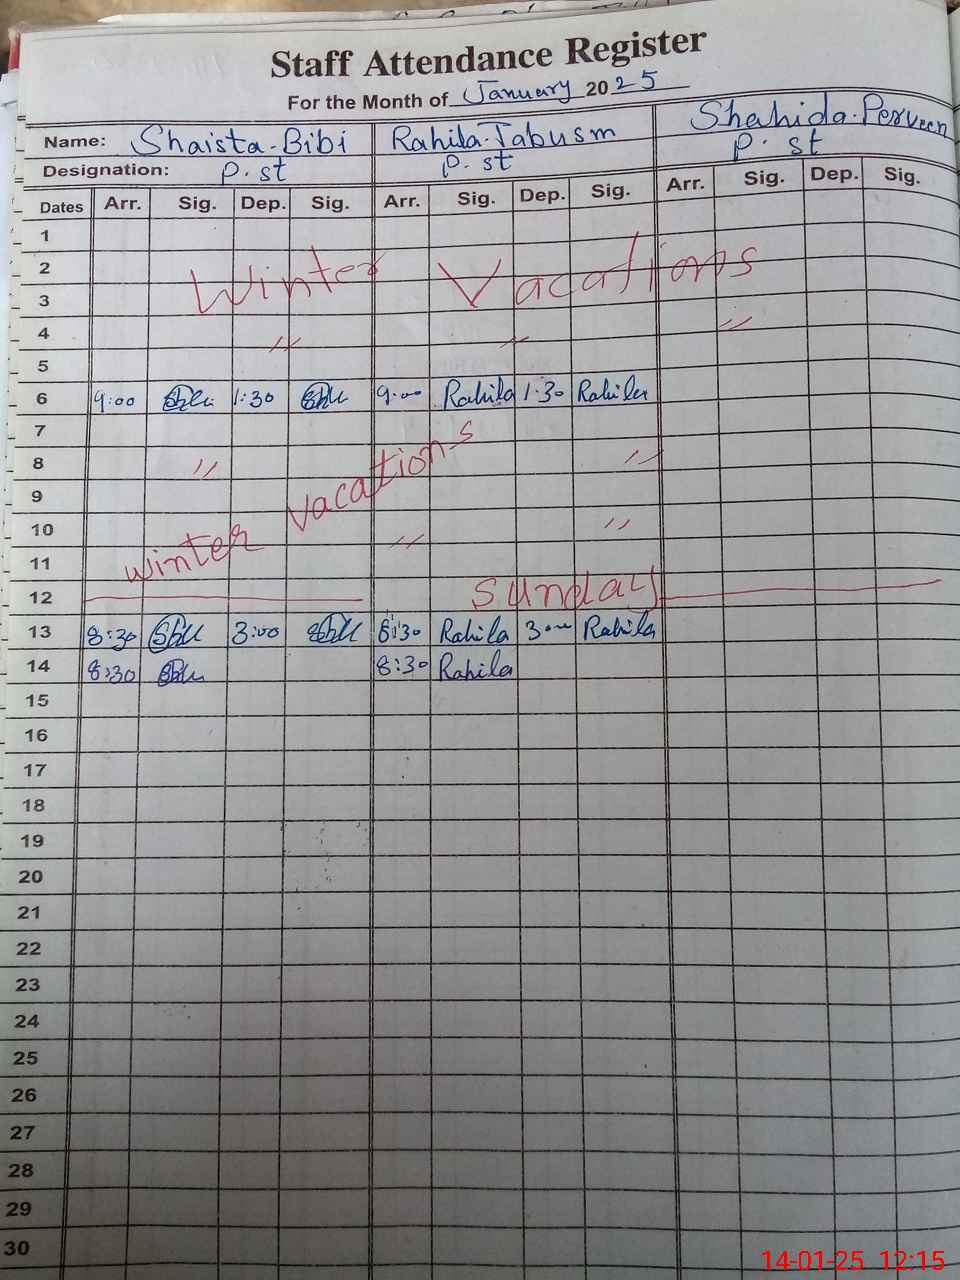 Staff Attendance Register
For the Month of January 2025
Name: Shaista.Bibi Rahila.Tabusm Shahida.Perveen
Designation: P.st P.st P.st
Dates Arr. Sig. Dep. Sig. Arr. Sig. Dep. Sig. Arr. Sig. Dep. Sig.
1
2 Winter Vacations
3
4 〃 〃 〃
5
6 9:00 1:30 9:00 Rahila 1:30 Rahila
7
8 〃 〃
9 winter vacations
10 〃
11 〃
12 Sunday
13 8:30 3:00 8:30 Rahila 3:00 Rahila
14 8:30 8:30 Rahila
15
16
17
18
19
20
21
22
23
24
25
26
27
28
29
30
14-01-25 12:15